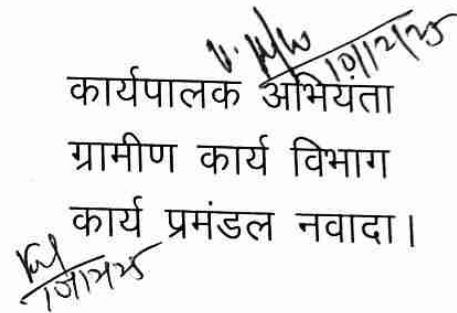 10/12/25
कार्यपालक अभियंता
ग्रामीण कार्य विभाग
कार्य प्रमंडल नवादा।